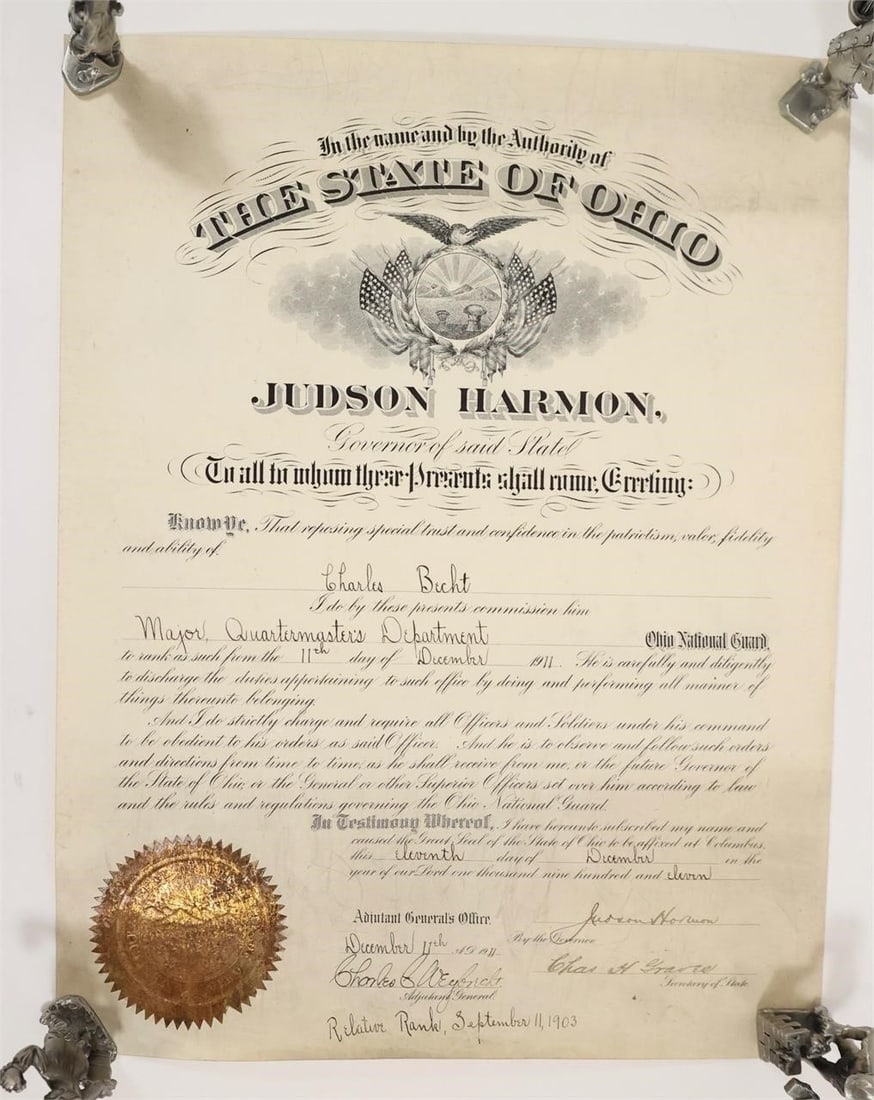 In the name and by the Authority of
THE STATE OF OHIO
JUDSON HARMON,
Governor of said State
To all to whom these Presents shall come, Greeting:
Know Ye, That reposing special trust and confidence in the patriotism, valor, fidelity
and ability of
Charles Becht
I do by these presents commission him
Major, Quartermaster's Department Ohio National Guard,
to rank as such from the 11th day of December 1911. He is carefully and diligently
to discharge the duties appertaining to such office by doing and performing all manner of
things thereunto belonging.
And I do strictly charge and require all Officers and Soldiers under his command
to be obedient to his orders as said Officer. And he is to observe and follow such orders
and directions from time to time, as he shall receive from me, or the future Governor of
the State of Ohio, or the General or other Superior Officers set over him according to law
and the rules and regulations governing the Ohio National Guard.
In Testimony Whereof, I have hereunto subscribed my name and
caused the Great Seal of the State of Ohio to be affixed at Columbus,
this eleventh day of December in the
year of our Lord one thousand nine hundred and eleven
Adjutant General's Office. Judson Harmon
December 11th A.D. 1911 By the Governor
Charles C Weybrecht Chas H Graves
Adjutant General. Secretary of State.
Relative Rank, September 11, 1903